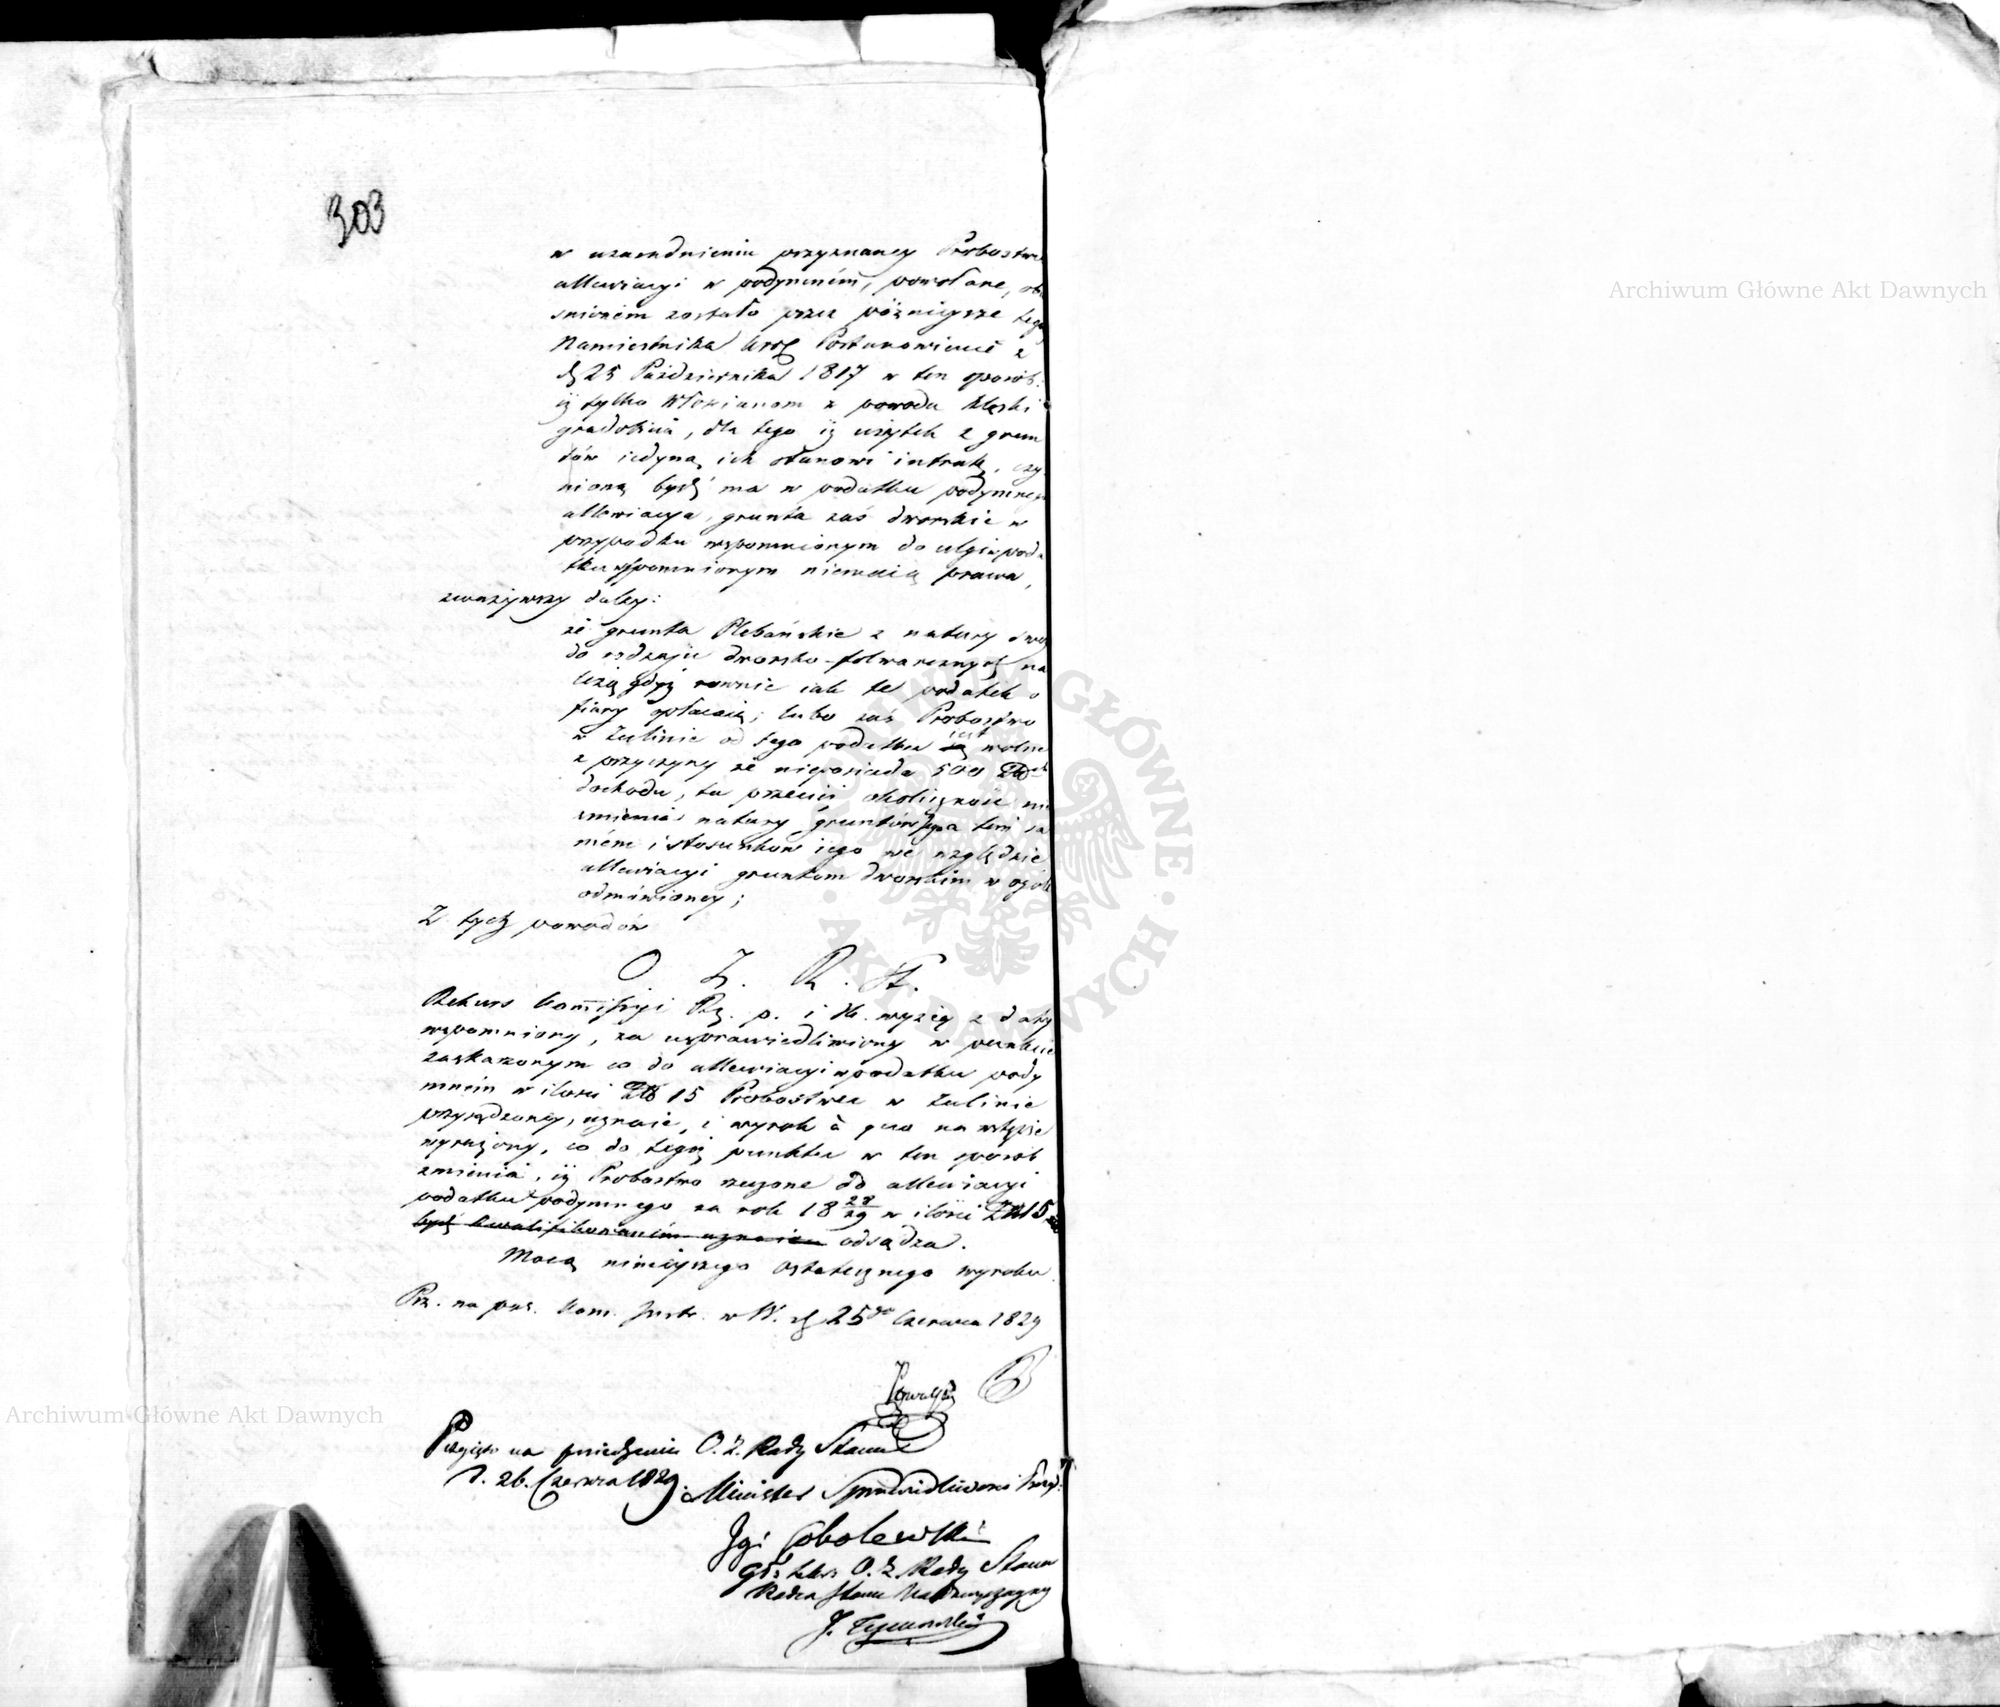 303
w uzasadnieniu przyznaney Probostwu
allewiacyi w podymném, powołane, ob
iaśnioném zostało przez późnieysze tegoż
Namiestnika Król Postanowienie z
d. 25 Października 1817 w ten sposób:
iż tylko Włościanom z powodu klęski
gradobicia, dla tego iż użytek z grun
tów iedyną ich stanowi intratę, czy
nioną bydź ma w podatku podymnym
allewiacya, grunta zaś dworskie w
przypadku wspomnionym do ulgi w poda
tku wspomnionym niemaią prawa,
zważywszy daley:
że grunta Plebańskie z natury swey
do rodzaju dworsko-folwarcznych na
leżą gdyż równie iak te podatek o
fiary opłacaią; lubo zaś Probostwo
w Żulinie od tego podatku jest wolne
z przyczyny że nieposiada 500 Złp
dochodu, ta przecież okoliczność nie
zmienia natury gruntów jego a tem sa
mém i stosunków iego we względzie
allewiacyi gruntom dworskim w ogóle
odmówioney;
Z tych powodów
O. Z. R. St.
Rekurs Kommissyi Rz. p. i Sk. wyżey z daty
wspomniony, za usprawiedliwiony w punkcie
zaskarżonym co do allewiacyi w podatku pody
mném w ilości Złp 15 Probostwu w Żulinie
przysądzoney, uznaie, i wyrok à quo na wstępie
wyrażony, co do tegoż punktu w ten sposób
zmienia, iż Probostwo rzeczone od allewiacyi
podatku podymnego za rok 18 28/29 w ilości Złp 15
bydź kwalifikowaném uznaie odsądza.
Mocą ninieyszego ostatecznego wyroku
Prz. na pos. Kom. Instr. w W. d. 25go Czerwca 1829
Przyięto na posiedzeniu O. Z. Rady Stanu
d. 26. Czerwca 1829. Minister Sprawiedliwości Prezyd:
Igi Sobolewski
O. Z. Rady Stanu
Radca Stanu Nadzwyczayny
J. Tymowski